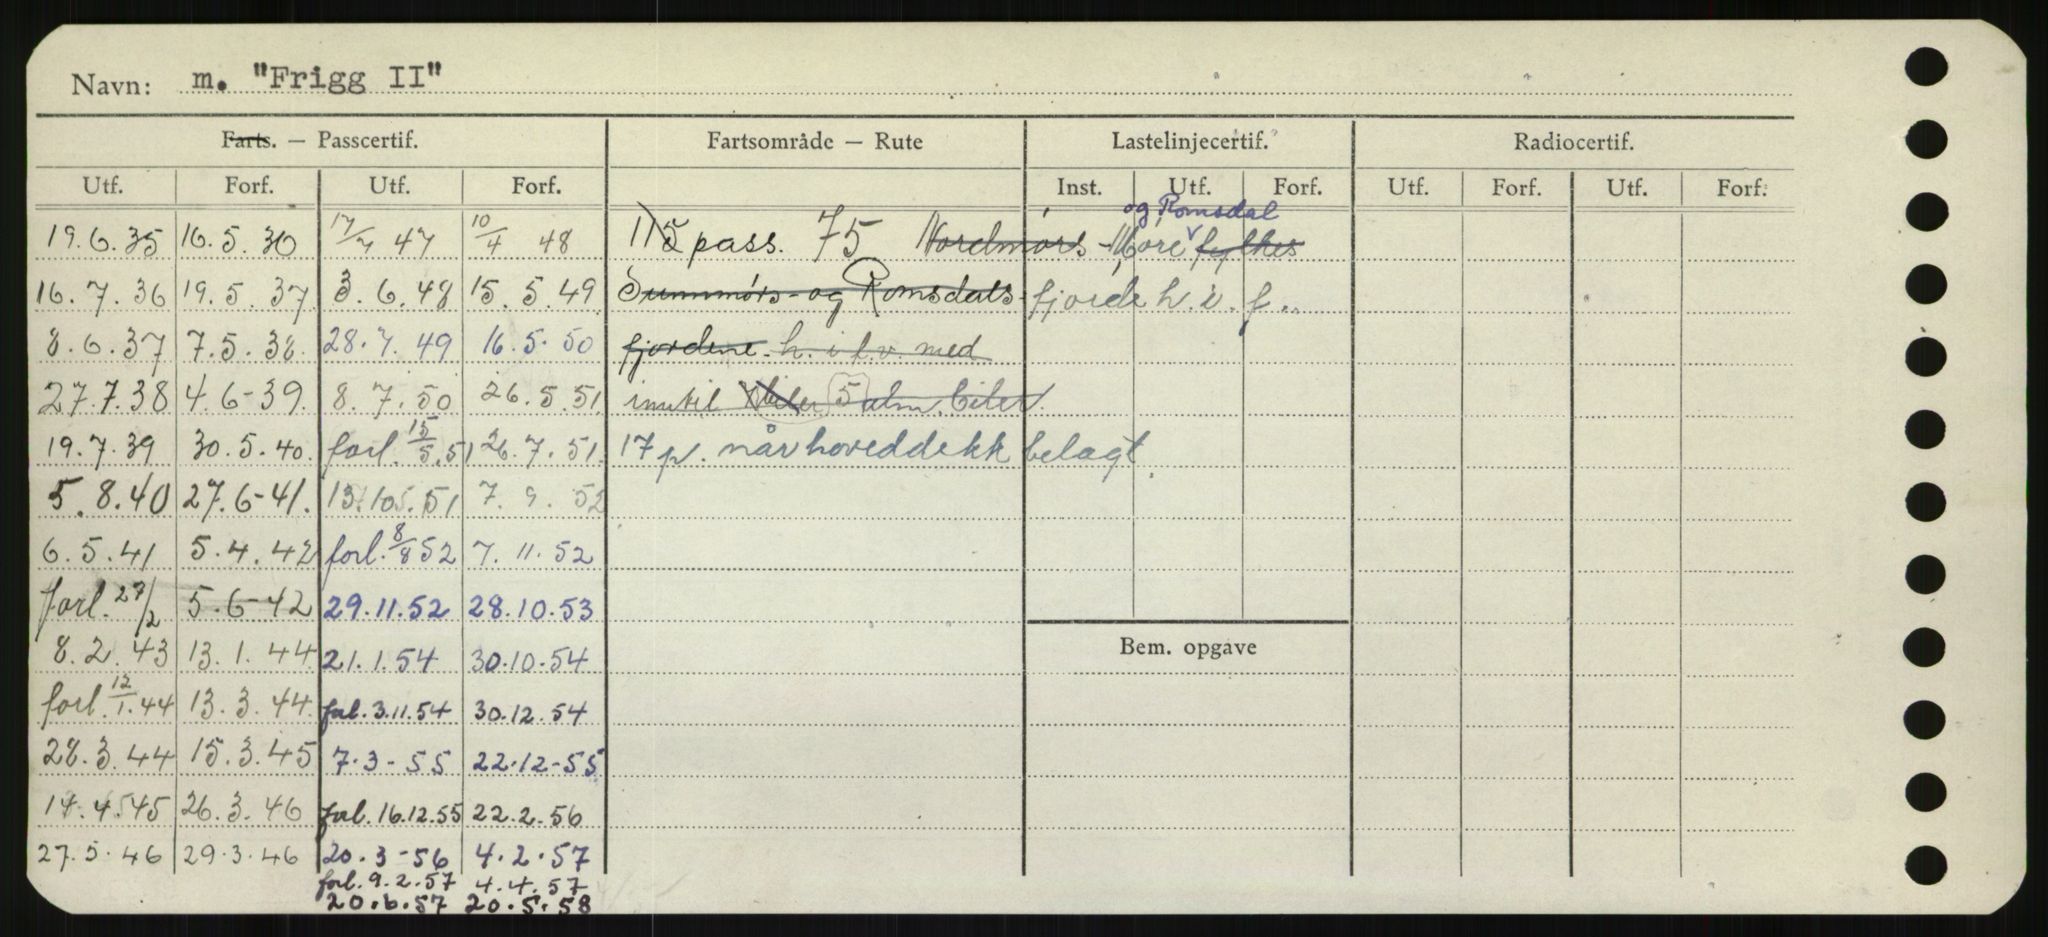 Navn: m. "Frigg II"
Farts. — Passcertif. Fartsområde — Rute Lastelinjecertif. Radiocertif.
Utf. Forf. Utf. Forf. Inst. Utf. Forf. Utf. Forf. Utf. Forf.
og Romsdal
19.6.35 16.5.36 17/7 47 10/4 48 115 pass. 75 Nordmørs - Møre fylkes
16.7.36 19.5.37 3.6.48 15.5.49 Sunnmørs- og Romsdals- fjorde h. i. f..
8.6.37 7.5.38. 28.7.49 16.5.50 fjordene. h. i f. v. med
27.7.38 4.6-39. 8.7.50 26.5.51 inntil biler 5 alm. biler.
19.7.39 30.5.40. forl. 15/5.51 26.7.51. 17 p. når hoveddekk belagt.
5.8.40 27.6-41. 13.10.51 7.9.52
6.5.41 5.4.42 forl. 8/8 52 7.11.52
forl. 27/2 5.6-42 29.11.52 28.10.53
8.2.43 13.1.44 21.1.54 30.10.54 Bem. opgave
forl. 12/1.44 13.3.44 forl. 3.11.54 30.12.54
28.3.44 15.3.45 7.3-55 22.12-55
14.4.45 26.3.46 forl. 16.12.55 22.2.56
27.5.46 29.3.46 20.3-56 4.2.57
forl. 9.2.57 4.4.57
20.6.57 20.5.58